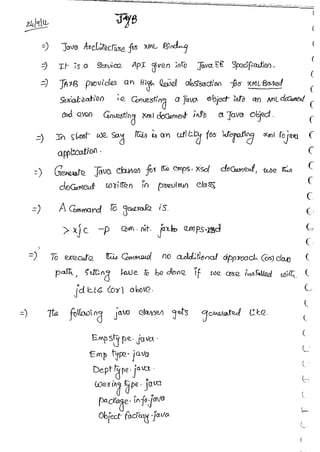 24/9/12
JAXB
=) Java Architecture for XML Binding
=) It is a Service API given into Java EE Specification.
=) JAXB provides an High level abstraction for XML Based
Serialization i.e Converting a Java object into an XML document
and even Converting Xml document into a Java object.
=) In short we say this is an utility for integrating xml to java
application.
=) Generate Java classes for the emps.xsd document, use this
document written in previous class
=) A Command to generate is
> xjc -p com.nit.jaxb emps.xsd
=) To execute this Command no additional approach (or) class
path, Setting have to be done if we are installed with
jdk1.6 (or) above.
=) The following java classes gets generated like.
Empstype.java
Emp type.java
Dept type.java
Wering type.java
package-info.java
Object factory.java